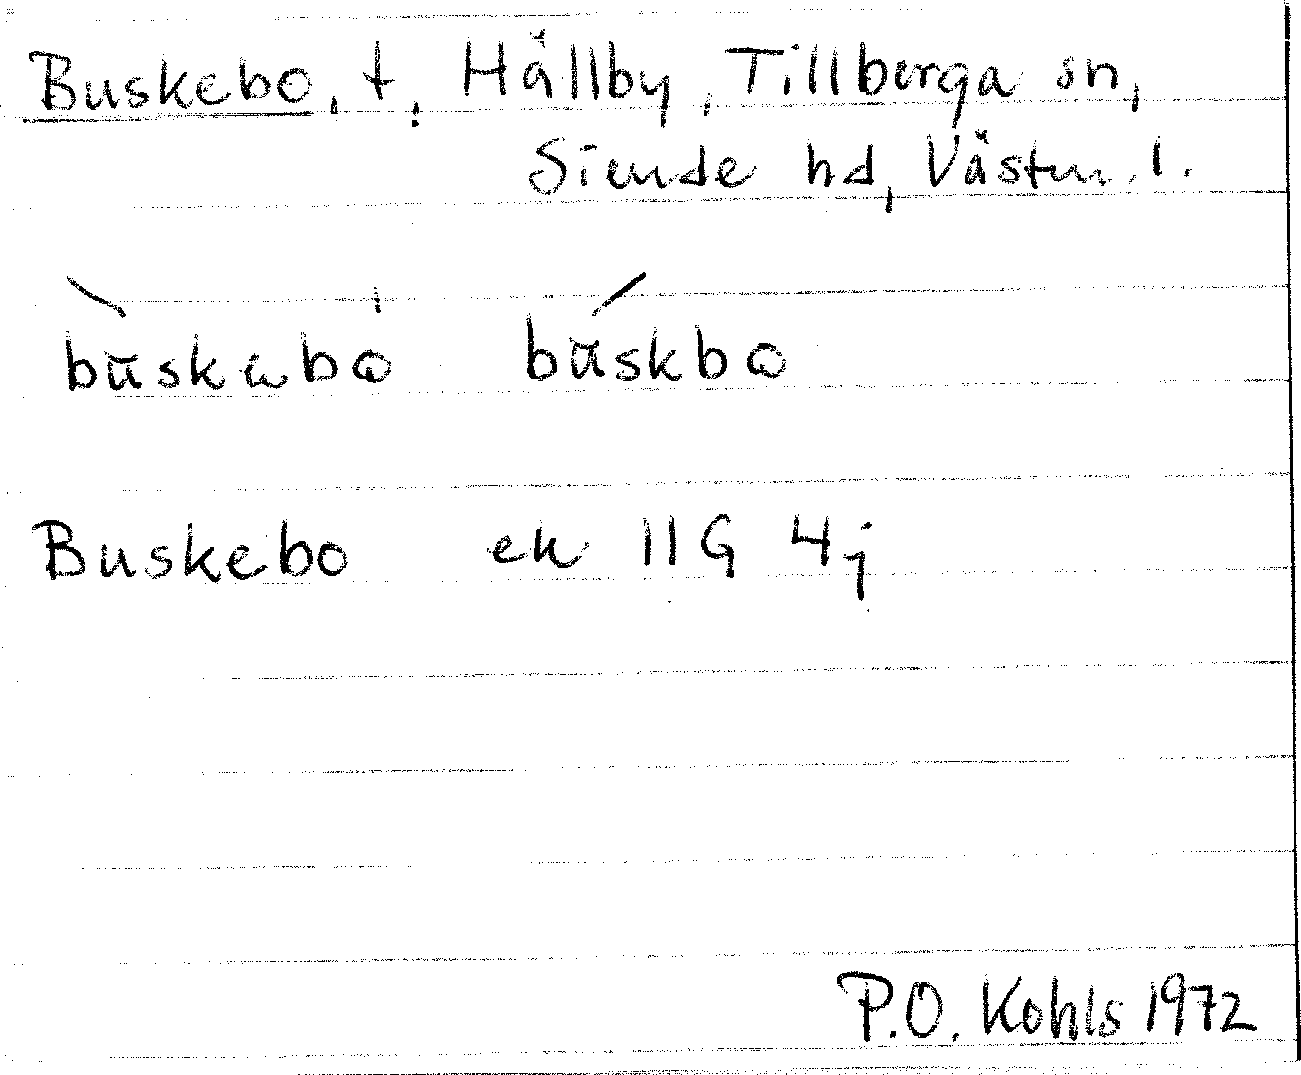 Buskebo, t, Hällby, Tillberga sn,
Siende hd, Västm. l.
buskebo buskbo
Buskebo ek 11G 4j
P.O. Kohls 1972